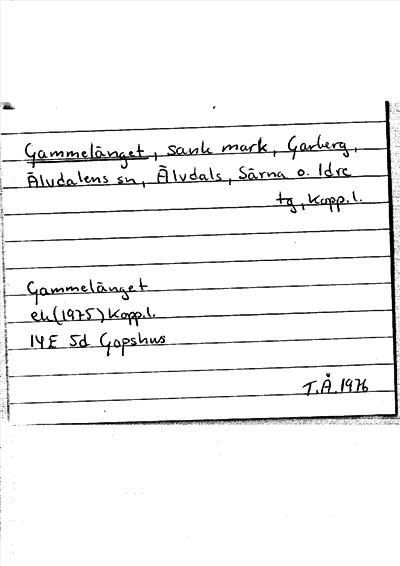 Gammelänget, sank mark, Garberg,
Älvdalens sn, Älvdals, Särna o. Idre
tg, Kopp.l.
Gammelänget
ek (1975) Kopp.l.
14E 5d Gopshus
T.Å. 1976